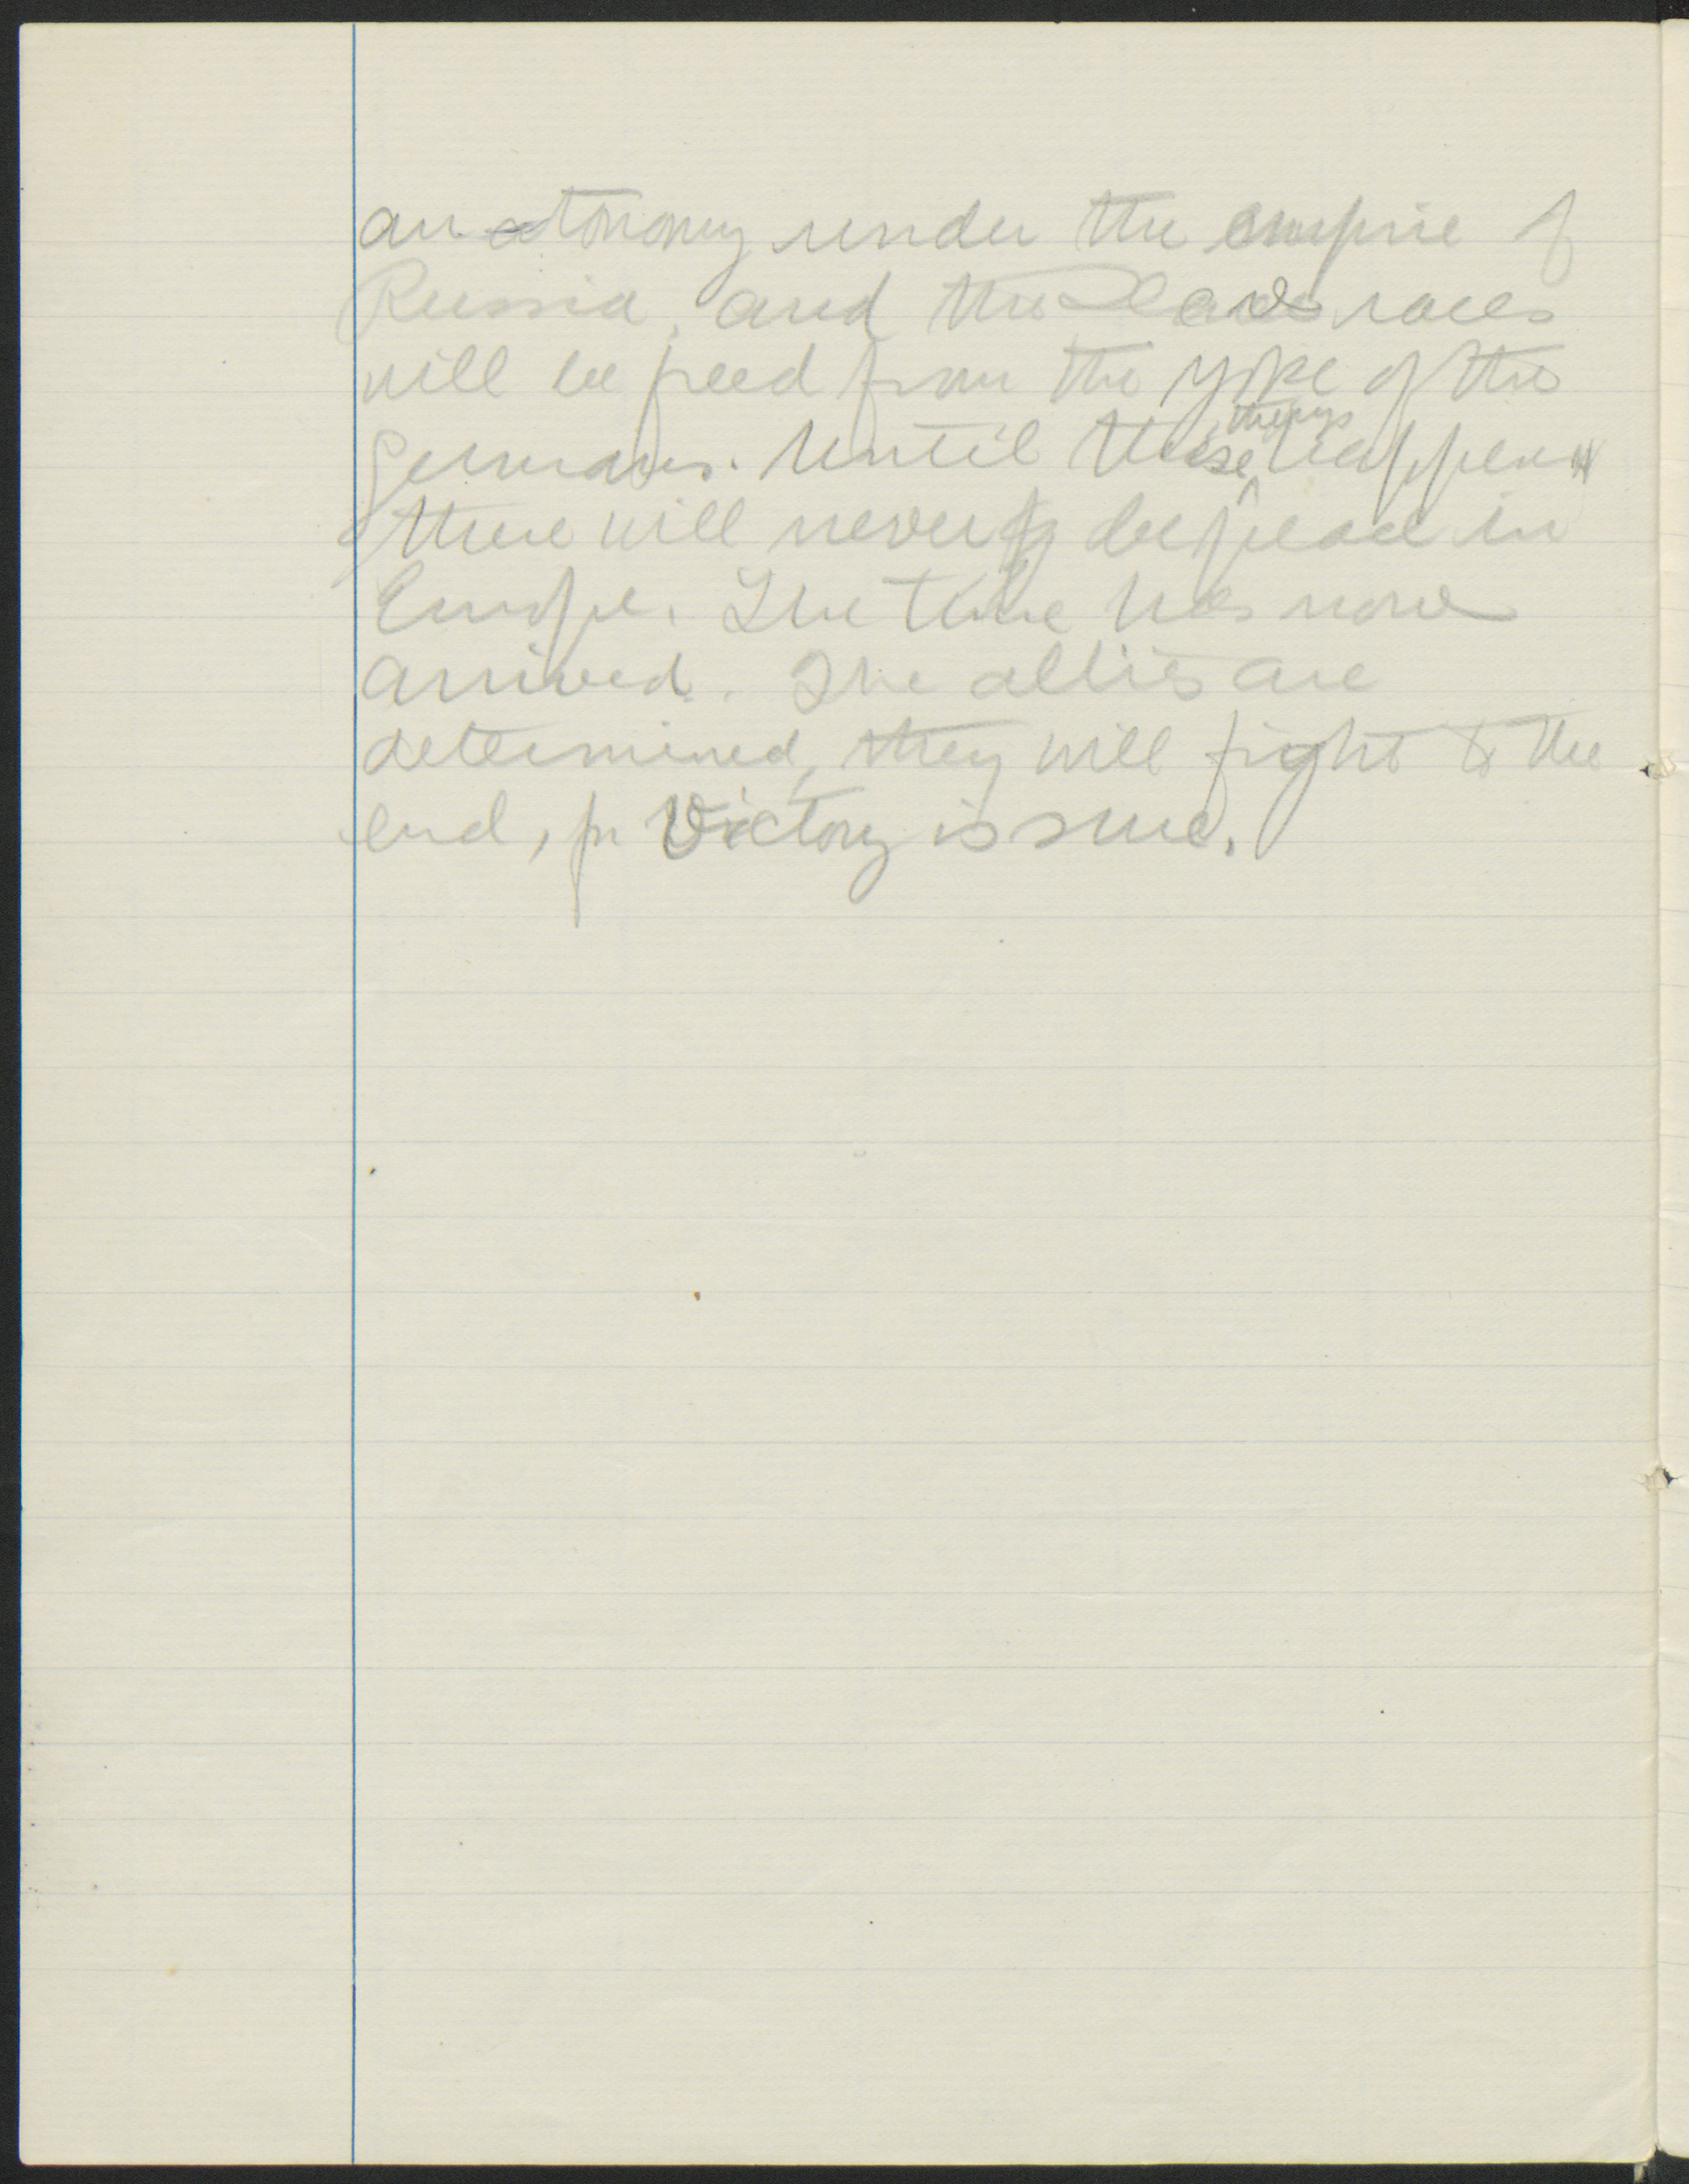 an atonomy under the empire of
Russia, and the Slavs races
will be freed from the yoke of the
Germans. Until these things happen
there will never be peace in
Europe. The time has now
arrived. The allies are
determined, they will fight to the
end, for Victory is sure.